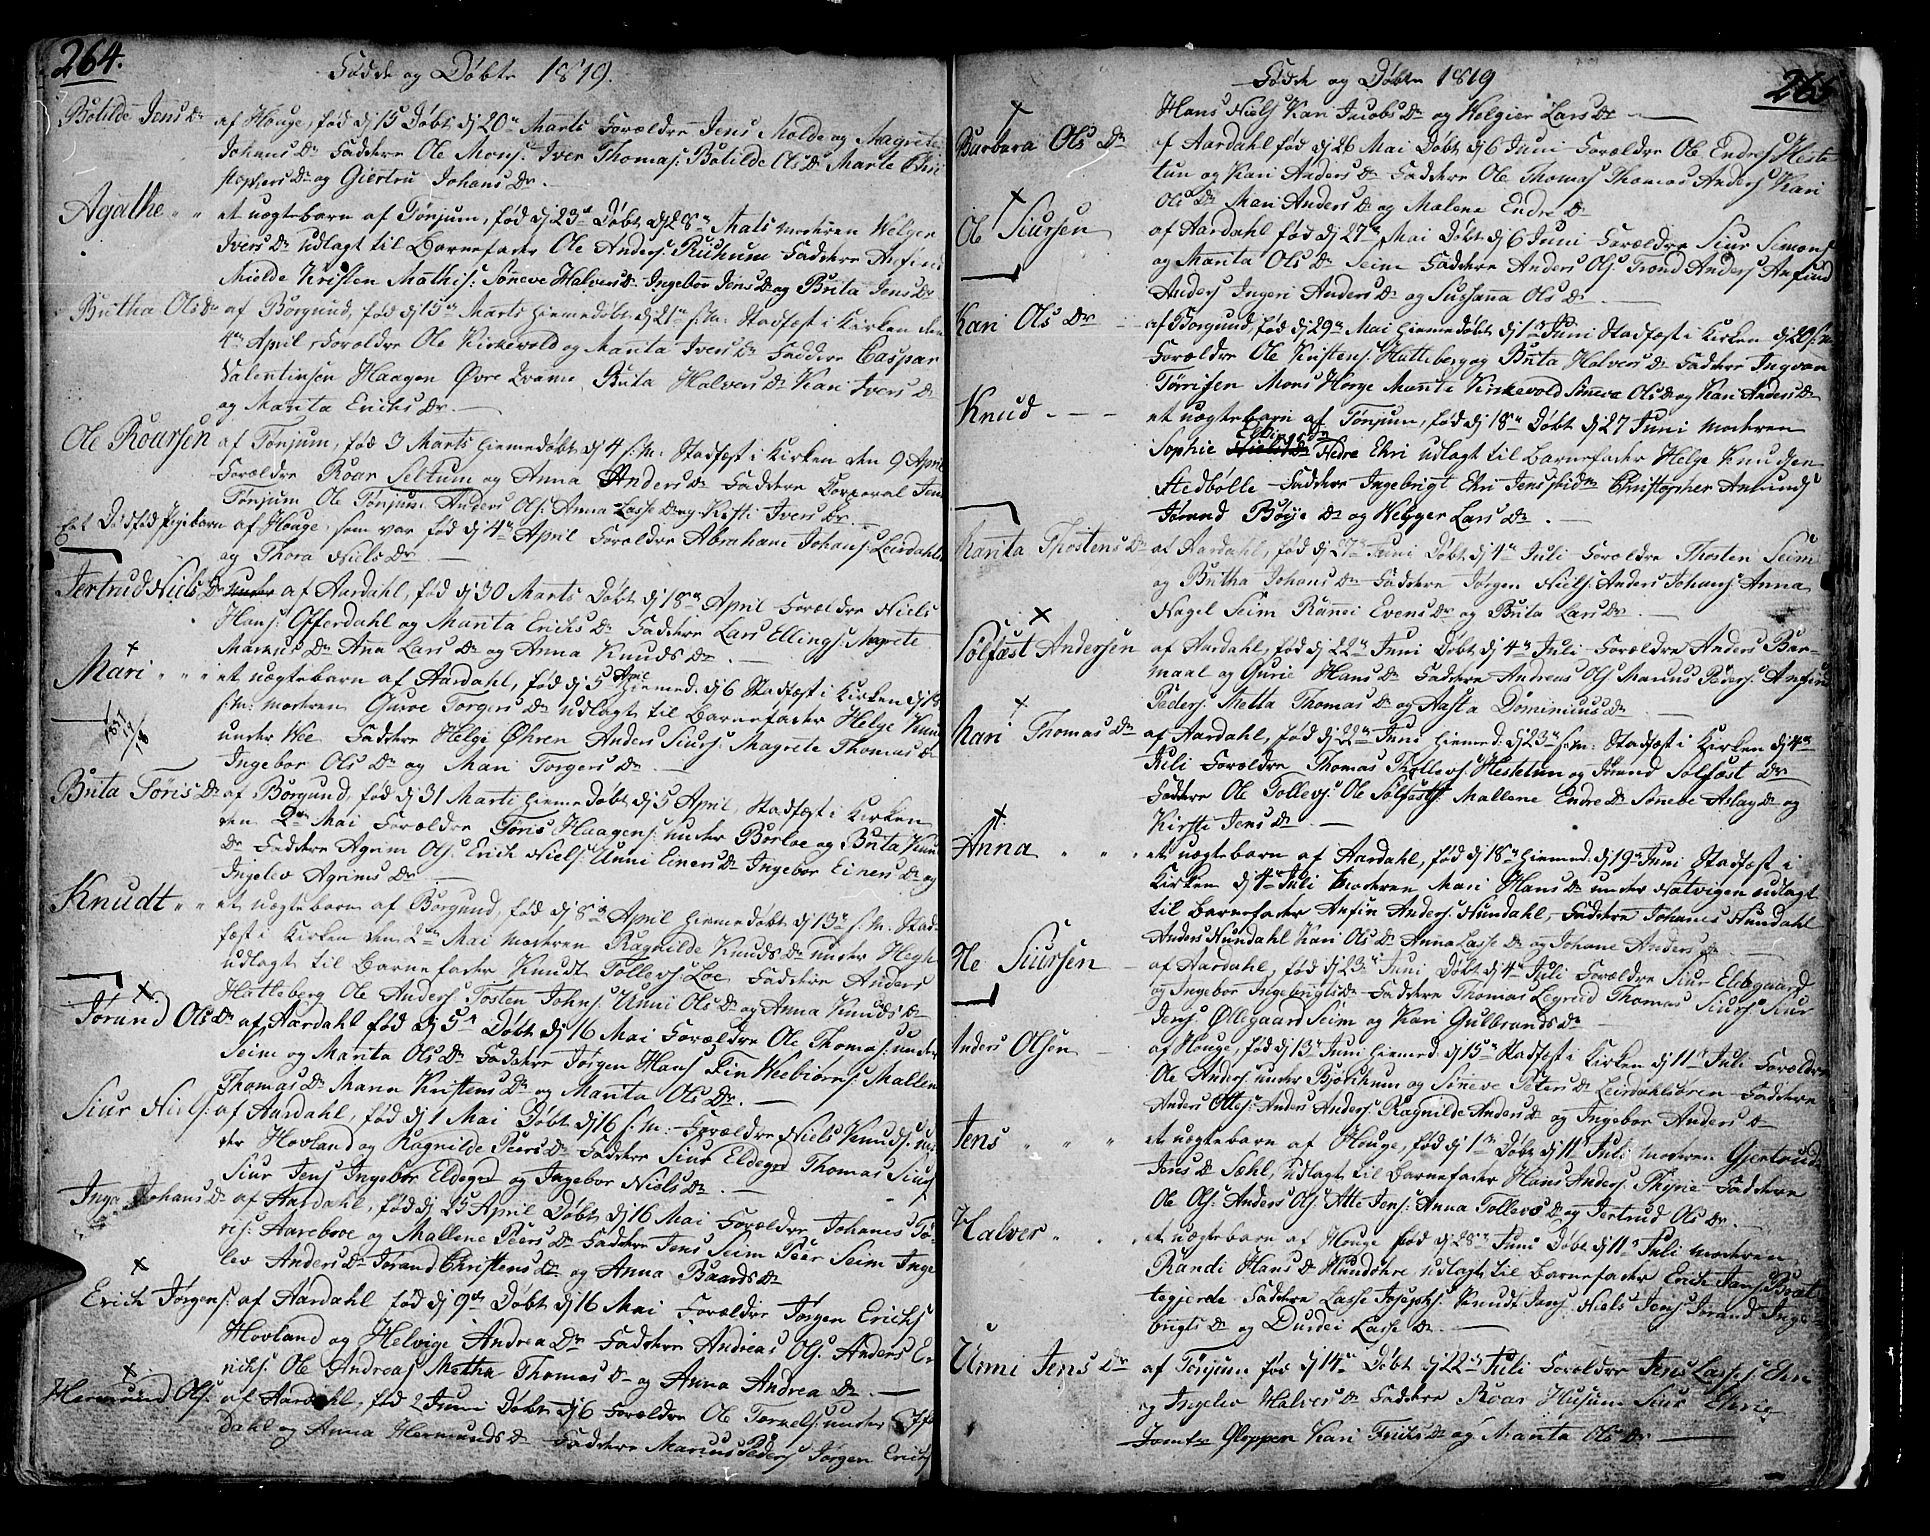 264.
Fødde og Døbte 1819.
Botilde Jens Dr af Houge, fød dj 15 Døbt dj 20de Marts Forældre Jens Molde og Magrete
Johans Dr Faddere Ole Mons: Iver Thomas: Botilde Ols Dr Marte Chri
stophers Dr og Giertru Johans Dr
Agathe " " et uægtebarn af Tønjum, fød dj 23de Døbt dj 28de Mats modren Helger
Ivers Dr udlagt til Barnefader Ole Anders: Ruhum Faddere Anfind
Mielde Kristen Mathis: Søneve Halvers Dr Ingebor Jens Dr og Brita Jens Dr
Britha Ols Dr af Borgund, fød dj 15de Marts hiemedøbt dj 21de s: m: Stadfæst i Kirken den
4de April Forældre Ole Kirkevold og Marita Ivers Dr Faddere Caspar
Valentinsen Haagen Øvre Qvame Brita Halvers Dr Kari Ivers Dr
og Marita Erichs Dr
Ole Roarsen af Tønjum, fød 3 Marts hiemedøbt dj 4 s: m: Stadfæst i Kirken den 9 April
Forældre Roar Seltum og Anna Anders Dr Faddere Corporal Jens
Tønjum Ole Tønjum Anders Ols: Anna Lasse Dr og Kirsti Ivers Dr
Eet Dødfød Pigebarn af Houge, som var fød dj 4de April Forældre Abraham Johans: Leirdahls
og Thora Niels Dr
Jertrud Niels Dr af Aardahl, fød dj 30 Marts Døbt dj 18de April Forældre Niels
Hans: Offerdahl og Marita Erichs Dr Faddere Lars Ellings: Magrete
Markus Dr Ana Lars Dr og Anna Knuds Dr
Mari " " et uægtebarn af Aardahl, fød dj 5 April Hiemed. dj 6 Stadfæst i Kirken dj 18
s: m: modren Gurve Torgers Dr udlagt til Barnefader Helge Knud
under Wee Faddere Helge Øhren Anders Siurs: Magrete Thomas Dr
Ingebor Ols Dr og Mari Torgers Dr
Brita Tøris Dr af Borgund, fød dj 31 Marti hiemedøbt dj 5 April, Stadfæst i Kirken
den 2den Mai Forældre Tøris Haagens: under Borloe og Brita Knu
Dr Faddere Agrim Ols: Erich Niels: Unni Einers Dr Ingebor Einers Dr og
Ingelev Agrims Dr
Knudt " " et uægtebarn af Borgund, fød dj 8de April hiemedøbt dj 13de s: m: Stad-
fæst i Kirken den 2den Mai modren Ragnilde Knuds Dr under Hegh
udlagt til Barnefader Knudt Tollevs: Loe Faddere Anders
Hatleberg Ole Anders: Tosten Johns: Unni Ols Dr og Anna Knuds Dr
Jørund Ols Dr af Aardahl fød dj 5de Døbt dj 16 Mai Forældre Ole Thomas: under
Seim og Marita Ols Dr Faddere Jørgen Hans: Fin Weebiørns: Mallene
Thomas Dr Maria Kristens Dr og Marita Ols Dr
Siur Niels: af Aardahl, fød dj 1 Mai Døbt dj 16 s: m: Forældre Niels Knuds: un
der Hovland og Ragnilde Peers Dr Faddere Siur Eldegrd Thomas Siurs
Siur Jens: Ingebor Eldegrd og Ingebor Niels Dr
Inga Johans Dr af Aardahl, fød dj 25 April Døbt dj 16 Mai Forældre Johanes Tø-
ris: Aareboe og Mallene Peers Dr Faddere Jens Seim Peer Seim Inge
lev Anders Dr Jorand Christens Dr og Anna Baards Dr
Erich Jørgens: af Aardahl fød dj 9de Døbt dj 16 Mai Forældre Jørgen Erichs
Hovland og Helvige Andrea Dr Faddere Andreas Ols: Anders E
richs: Ole Andreas: Metha Thomas Dr og Anna Andrea Dr
Hermund Ols: af Aardahl, fød 2 Juni Døbt dj 6 Forældre Ole Torkels: under Offer
dahl og Anna Hermunds Dr Faddere Marius Peders Jørgen Erichs
265
Fødde og Døbte 1819
Hans Niels Kari Jacobs Dr og Helgier Lars Dr
Barbara Ols Dr af Aardahl fød dj 26 Mai Døbt dj 6 Juni Forældre Ole Endres Heste-
tun og Kari Anders Dr Faddere Ole Thomas Thomas Anders Kari
Ols Dr Mari Anders Dr og Malene Endre Dr
Ole Siursen af Aardahl fød dj 27de Mai Døbt dj 6 Juni Forældre Siur Simons
og Marita Ols Dr Seim Faddere Anders Ols Trond Anders Anfind
Anders Ingeri Anders Dr og Sussanna Ols Dr
Kari Ols Dr af Borgund, fød dj 29de Mai hiemedøbt dj 1ste Juni Stadfæst i Kirken dj 20 s: m:
Forældre Ole Kristens: Hatleberg og Brita Halvers Dr Faddere Ingvar
Tørrisen Mons Horge Marite Kirkevold Søneve Ols Dr og Kari Anders Dr
Knud - - - et uægtebarn af Tønjum, fød dj 18de Døbt dj 27 Juni modren
Sophie Nedre Eri udlagt til Barnefader Helge Knudsen
Stedbølle Faddere Ingebrigt Eri Christopher Amunds
Jørand Børje Dr og Helger Lars Dr
Marita Thostens Dr af Aardahl, fød dj 27de Juni Døbt dj 4de Juli Forældre Thosten Seim
og Britha Johans Dr Faddere Jørgen Niels: Anders Johans: Anna
Nagel Seim Rannei Evens Dr og Brita Lars Dr
Sølfæst Andersen af Aardahl, fød dj 22de Juni Døbt dj 4de Juli Forældre Anders Bor-
maal og Gurie Hans Dr Faddere Andreas Ols Marius Peders: Anfin
Peders: Metta Thomas Dr og Aasta Dominicus Dr
Kari Thomas Dr af Aardahl, fød dj 22de Juni hiemed. dj 23de s: m: Stadfæst i Kirken dj 4de
Juli Forældre Thomas Tollevs: Hestetun og Jørand Sølfæst Dr
Faddere Ole Tollevs: Ole Sølfæsts: Mallene Endre Dr Søneve Aslag Dr og
Kirsti Jens Dr
Anna " " et uægtebarn af Aardahl, fød dj 18de hiemed. dj 19de Juni Stadfæst i
Kirken dj 4de Juli modren Mari Hans Dr under Natvigen udlagt
til Barnefader Anfin Anders: Hundahl, Faddere Johanes Hundahl
Anders Hundahl Kari Ols Dr Anna Lasse Dr og Johane Anders Dr
Ole Siursen af Aardahl, fød dj 23de Juni Døbt dj 4de Juli Forældre Siur Eldegaard
og Ingebor Ingebrigts Dr Faddere Thomas Legreid Thomas Siurs Siur
Jens: Øllegaard Seim og Kari Gulbrands Dr
Anders Olsen af Houge, fød dj 13de Juni hiemed. dj 15de Stadfæst i Kirken dj 11te Juli Forældre
Ole Anders: under Bjørchum og Søneve Peters Dr Leirdahlsøren Faddere
Anders Ottes: Anders Anders: Ragnilde Anders Dr og Ingebor Anders Dr
Jens " " " et uægtebarn af Houge, fød dj 1ste Døbt dj 11te Juli modren Gjertrud
Jens Dr Sæhl, udlagt til Barnefader Hans Anders: Thyrie Faddere
Ole Ols: Anders Ols: Atle Jens: Anna Tollevs Dr og Jertrud Ols Dr
Halver " " et uægtebarn af Houge fød dj 28de Juni Døbt dj 11te Juli modren
Randi Hans Dr Hundøhre udlagt til Barnefader Erich Jans:
tegjerde Faddere Lasse Josephs: Knudt Jens: Niels Jens: Jorand Inge
brigts Dr og Durdei Lasse Dr
Unni Jens Dr af Tønjum fød dj 14de Døbt dj 22de Juli Forældre Jens Lasses: Ehri
og Ingelev Halvers Dr Faddere Roar Husum Siur Ehrie
Gloppen Kari Friks Dr og Marita Ols Dr